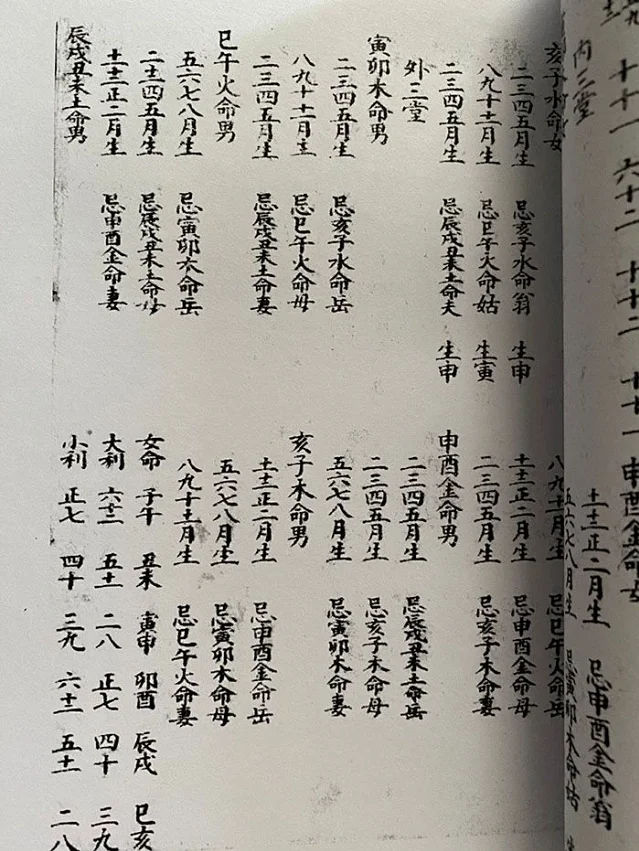 申酉金命女
十一十二正二月生 忌申酉金命翁
五六七八月生 忌寅卯木命姑
内三堂
亥子水命女
二三四五月生 忌亥子水命翁 生申
八九十十一月生 忌巳午火命姑 生寅
二三四五月生 忌辰戌丑未土命夫 生申
外三堂
寅卯木命男
二三四五月生 忌亥子水命岳
八九十十一月生 忌巳午火命母
二三四五月生 忌辰戌丑未土命妻
巳午火命男
五六七八月生 忌寅卯木命岳
二三四五月生 忌辰戌丑未土命母
十一十二正二月生 忌申酉金命妻
辰戌丑未土命男
八九十十一月生 忌巳午火命岳
十一十二正二月生 忌申酉金命母
二三四五月生 忌亥子木命妻
申酉金命男
二三四五月生 忌辰戌丑未土命岳
二三四五月生 忌亥子木命母
五六七八月生 忌寅卯木命妻
亥子木命男
十一十二正二月生 忌申酉金命岳
五六七八月生 忌寅卯木命母
八九十十一月生 忌巳午火命妻
女命 子午 丑未 寅申 卯酉 辰戌 巳亥
大利 六十二 五十一 二八 正七 四十 三九
小利 正七 四十 三九 六十二 五十一 二八